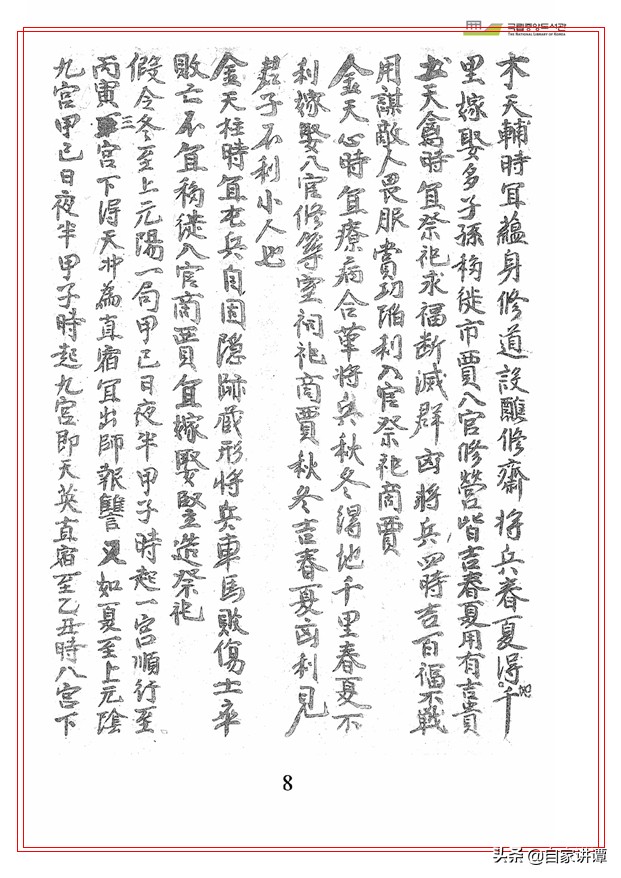 국립중앙도서관
THE NATIONAL LIBRARY OF KOREA
木天輔時冝蘊身修道設醮修齋将兵春夏得地千
里嫁娶多子孫移徙市賈入官修營皆吉春夏用有吉貴
土天禽時冝祭祀求福断滅群凶将兵四時吉百福不戰
用謀敵人畏服賞功陷利入官祭祀商賈
金天心時冝療病合藥将兵秋冬得地千里春夏不
利嫁娶入官修等室祠祀商賈秋冬吉春夏凶利見
君子不利小人也
金天柱時冝屯兵自固隠跡蔵形将兵車馬敗傷士卒
敗亡不冝移徙入官商賈冝嫁娶竪造祭祀
假令冬至上元陽一局甲己日夜半甲子時起一宮順行至
丙寅三宮下得天冲為直宿冝出師報讐又如夏至上元陰
九宮甲己日夜半甲子時起九宮即天英直宿至乙丑時八宮下
8
头条 @自家讲谭